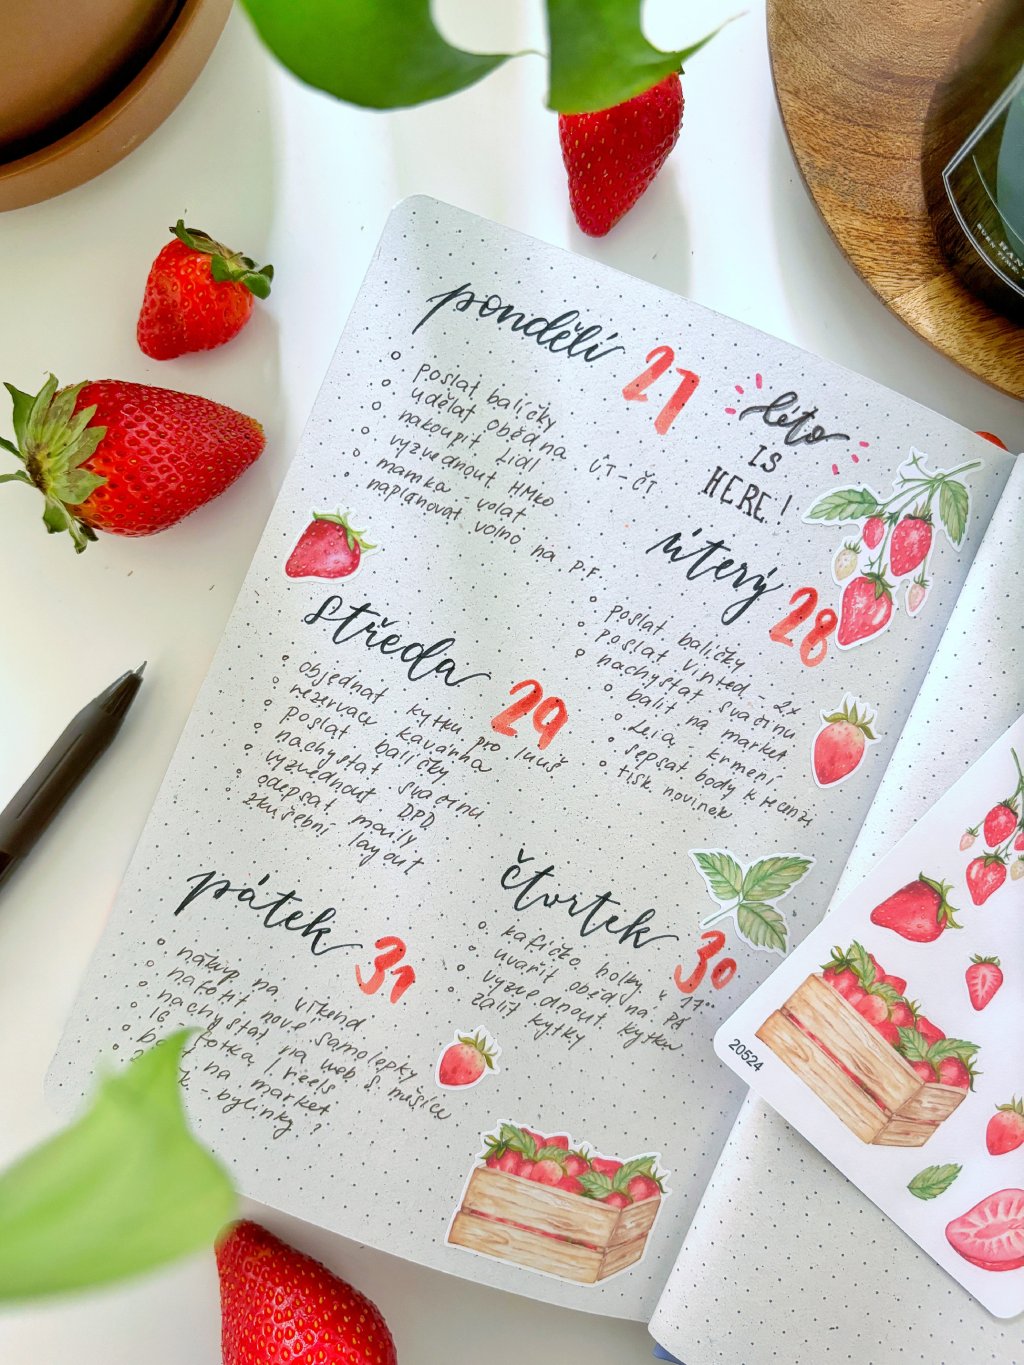 pondělí 27
poslat balíčky
udělat oběd na ÚT-ČT
nakoupit Lidl
vyzvednout HMko
mamka - volat
naplánovat volno na P.F.
léto
IS
HERE!
úterý 28
poslat balíčky
poslat Vinted - 2x
nachystat svačinu
balit na market
Leia - krmení
sepsat body k recenzi
tisk novinek
středa 29
objednat kytku pro
rezervace kavárna
poslat balíčky
nachystat svačinu
vyzvednout DPD
odepsat maily
zkušební layout
čtvrtek 30
kafíčko holky v 17⁰⁰
uvařit oběd na PÁ
vyzvednout kytku
zalít kytky
pátek 31
nákup na víkend
nafotit nové samolepky
nachystat na web s. měsíce
IG - fotka / reels
na market
- bylinky?
20524